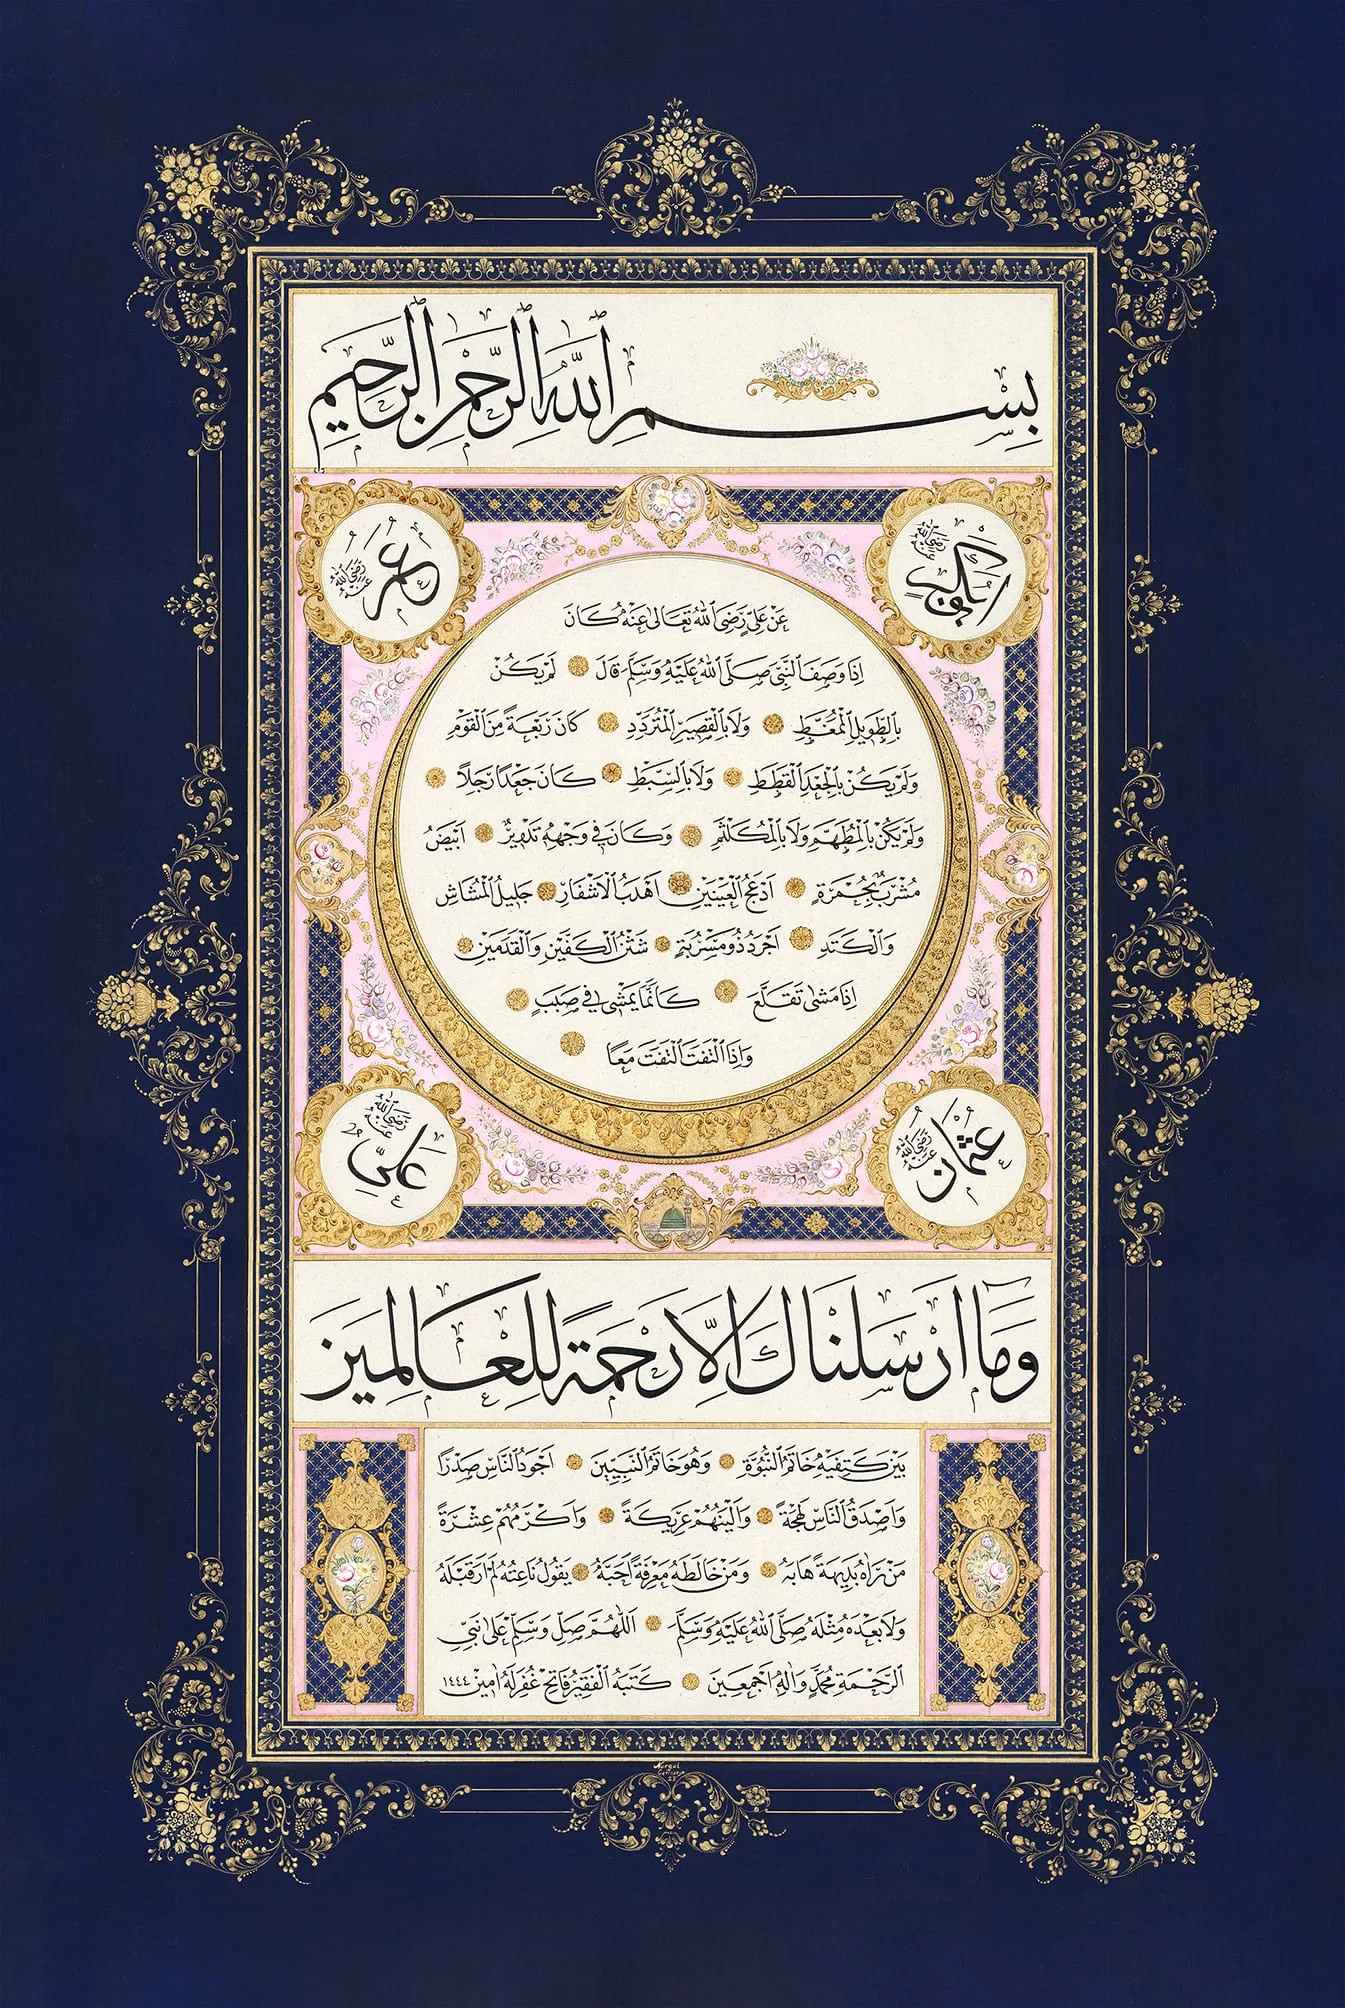 بِسْمِ اللّٰهِ الرَّحْمٰنِ الرَّحِيمِ
اَبُوبَكْرٍ رَضِيَ اللّٰهُ عَنْهُ
عُمَرُ رَضِيَ اللّٰهُ عَنْهُ
عَنْ عَلِيٍّ رَضِيَ اللّٰهُ تَعَالٰى عَنْهُ كَانَ
اِذَا وَصَفَ النَّبِيَّ صَلَّى اللّٰهُ عَلَيْهِ وَسَلَّمَ قَالَ لَمْ يَكُنْ
بِالطَّوِيلِ الْمُمَّغِطِ وَلَا بِالْقَصِيرِ الْمُتَرَدِّدِ كَانَ رَبْعَةً مِنَ الْقَوْمِ
وَلَمْ يَكُنْ بِالْجَعْدِ الْقَطَطِ وَلَا بِالسَّبِطِ كَانَ جَعْدًا رَجِلًا
وَلَمْ يَكُنْ بِالْمُطَهَّمِ وَلَا بِالْمُكَلْثَمِ وَكَانَ فِي وَجْهِهِ تَدْوِيرٌ اَبْيَضُ
مُشْرَبٌ بِحُمْرَةٍ اَدْعَجُ الْعَيْنَيْنِ اَهْدَبُ الْاَشْفَارِ جَلِيلُ الْمُشَاشِ
وَالْكَتَدِ اَجْرَدُ ذُو مَسْرُبَةٍ شَثْنُ الْكَفَّيْنِ وَالْقَدَمَيْنِ
اِذَا مَشٰى تَقَلَّعَ كَاَنَّمَا يَمْشِي فِي صَبَبٍ
وَاِذَا الْتَفَتَ الْتَفَتَ مَعًا
عُثْمَانُ رَضِيَ اللّٰهُ عَنْهُ
عَلِيٌّ رَضِيَ اللّٰهُ عَنْهُ
وَمَا اَرْسَلْنَاكَ اِلَّا رَحْمَةً لِلْعَالَمِينَ
بَيْنَ كَتِفَيْهِ خَاتَمُ النُّبُوَّةِ وَهُوَ خَاتَمُ النَّبِيِّينَ اَجْوَدُ النَّاسِ صَدْرًا
وَاَصْدَقُ النَّاسِ لَهْجَةً وَاَلْيَنُهُمْ عَرِيكَةً وَاَكْرَمُهُمْ عِشْرَةً
مَنْ رَاٰهُ بَدِيهَةً هَابَهُ وَمَنْ خَالَطَهُ مَعْرِفَةً اَحَبَّهُ يَقُولُ نَاعِتُهُ لَمْ اَرَ قَبْلَهُ
وَلَا بَعْدَهُ مِثْلَهُ صَلَّى اللّٰهُ عَلَيْهِ وَسَلَّمَ اَللّٰهُمَّ صَلِّ وَسَلِّمْ عَلٰى نَبِيِّ
الرَّحْمَةِ مُحَمَّدٍ وَاٰلِهِ اَجْمَعِينَ كَتَبَهُ الْفَقِيرُ فَاتِحْ غُفِرَ لَهُ اٰمِين ١٤٤٤
Nurgül